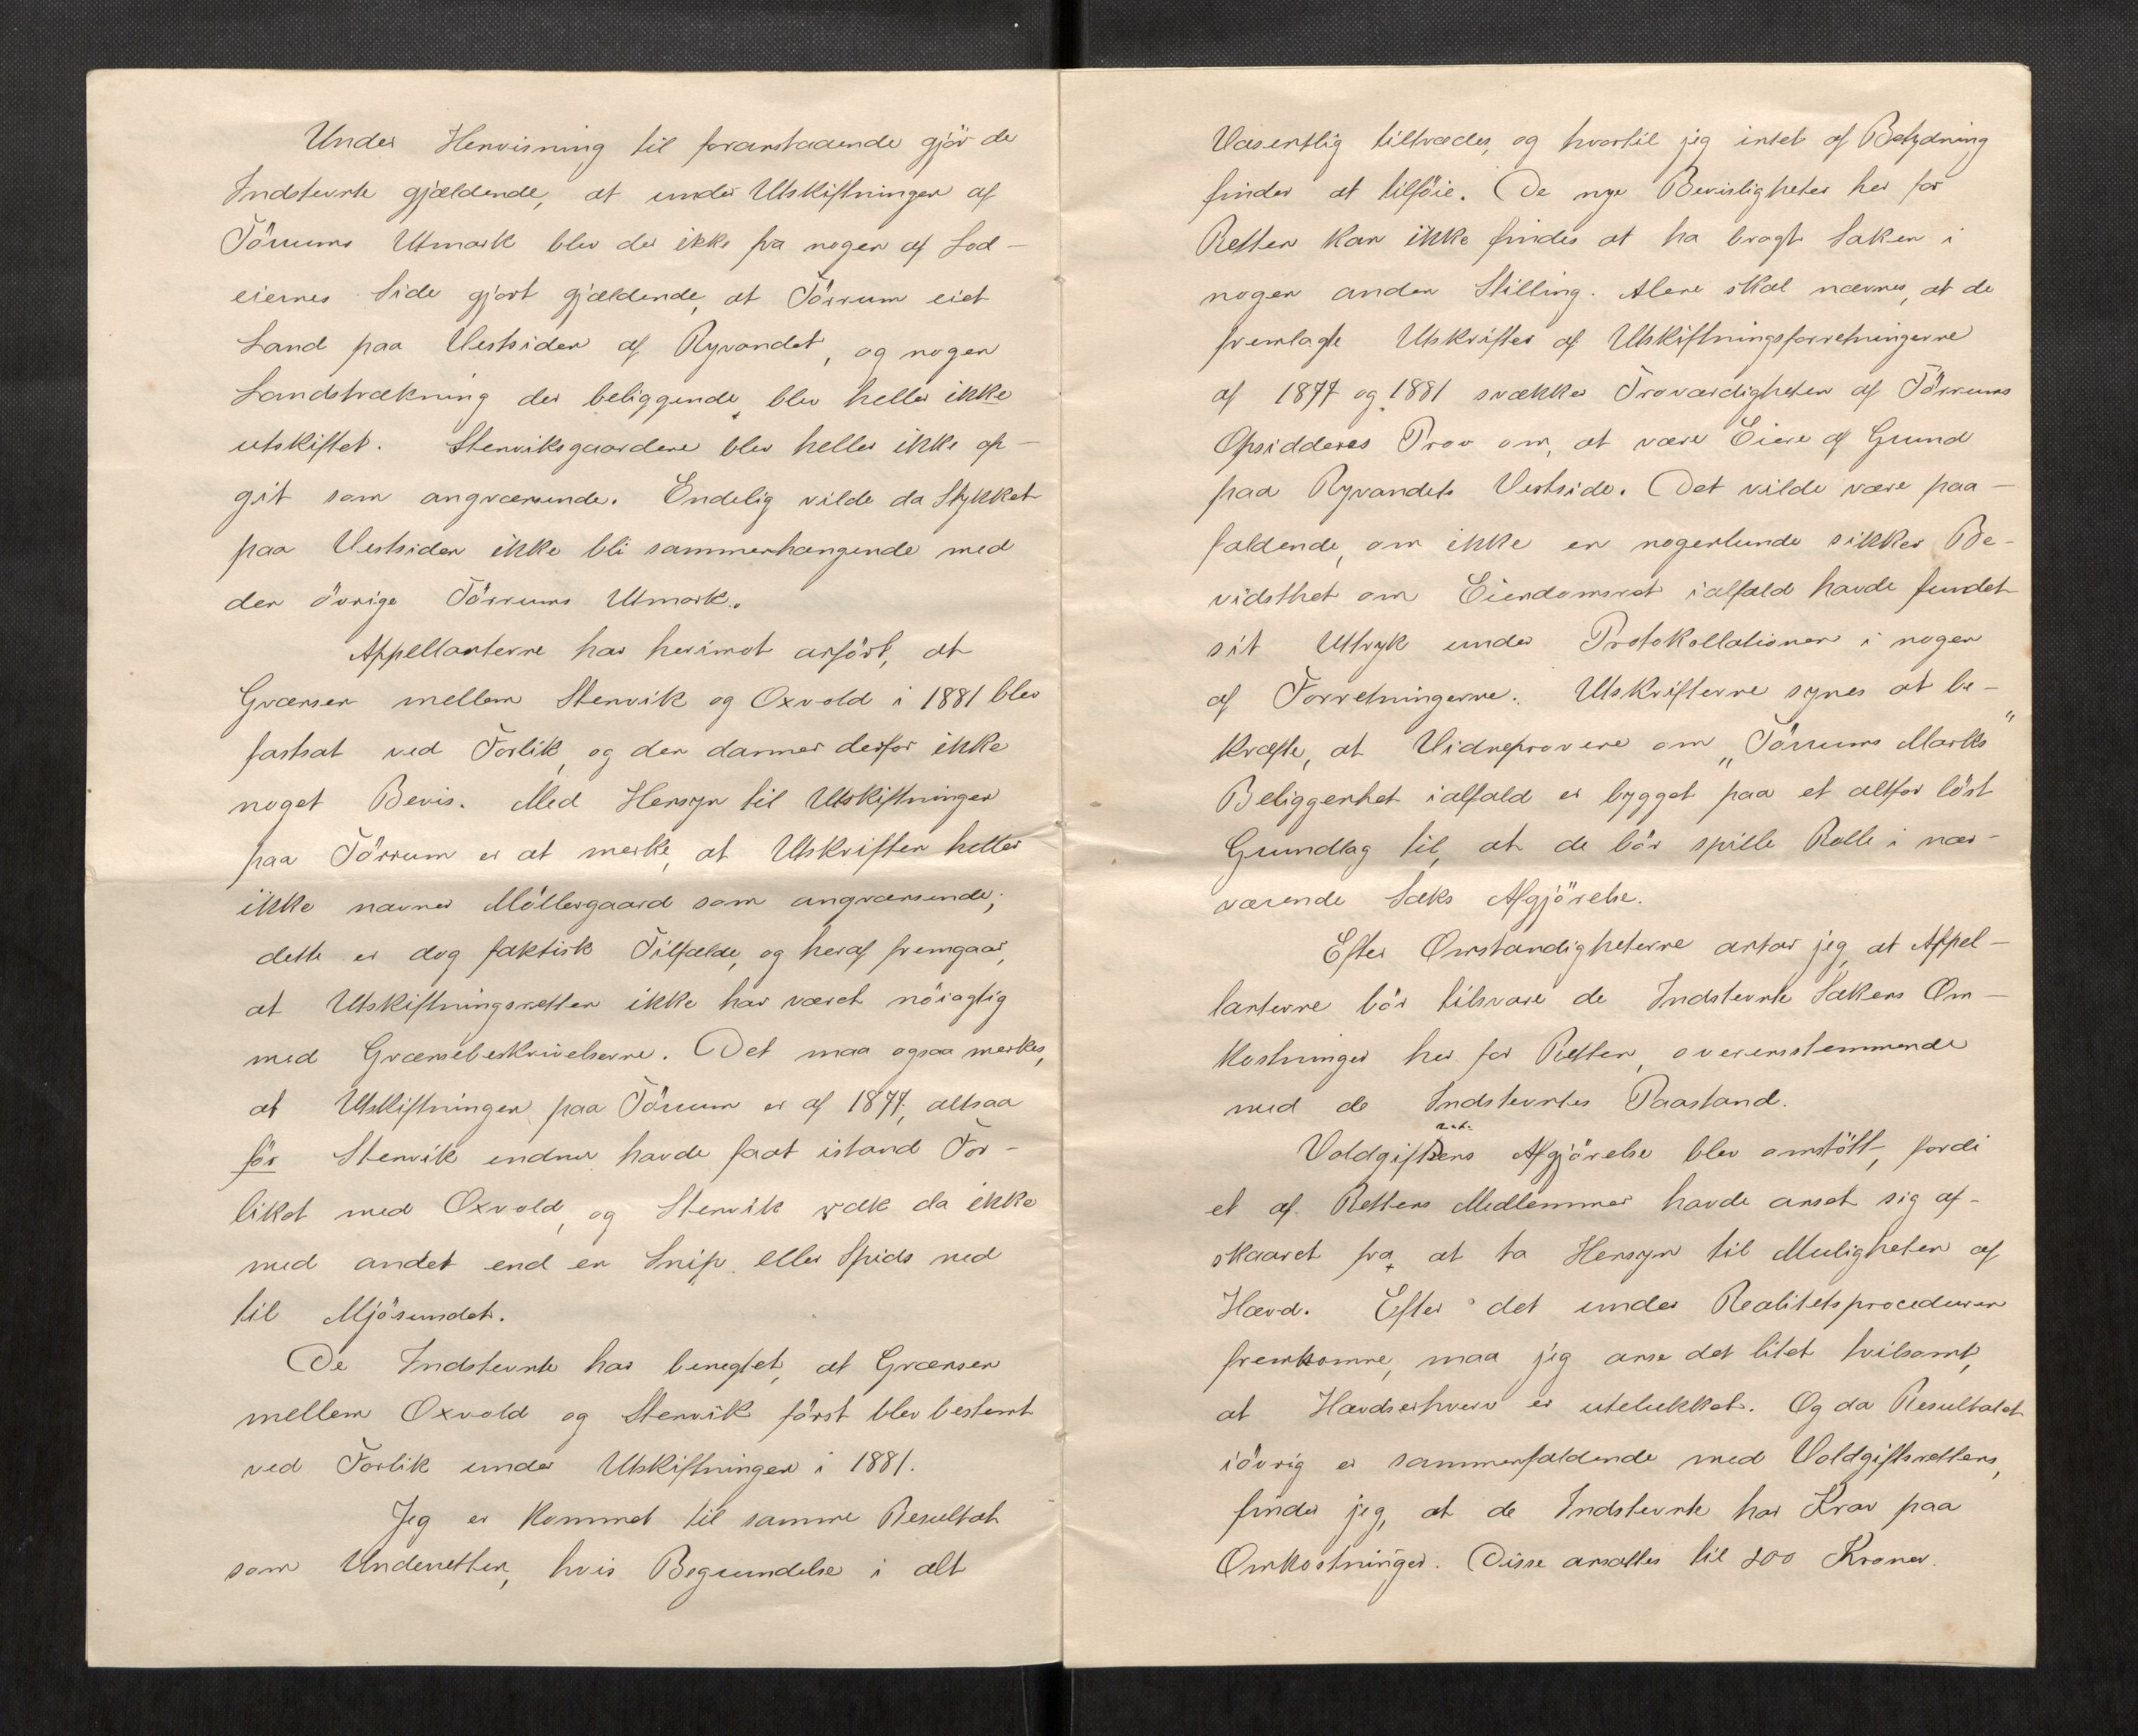 Under Henvisning til foranstaaende gjör de
Indstevnte gjældende, at under Utskiftningen af
Törrums Utmark blev der ikke fra nogen af Lod-
eiernes Side gjort gjældende, at Törrum eiet
Land paa Vestsiden af Ryvandet, og nogen
Landstrækning der beliggende blev heller ikke
utskiftet. Stenviksgaardene blev heller ikke op-
git som angrænsende. Endelig vilde da Stykket
paa Vestsiden ikke bli sammenhængende med
den övrige Törrums Utmark.
Appellanterne har herimot anfört, at
Grænsen mellem Stenvik og Oxvold i 1881 blev
fastsat ved Forlik, og den danner derfor ikke
noget Bevis. Med Hensyn til Utskiftningen
paa Törrum er at merke, at Utskriften heller
ikke nævner Möllergaard som angrænsende;
dette er dog faktisk Tilfælde, og heraf fremgaar,
at Utskiftningsretten ikke har været nöiagtig
med Grænsebeskrivelserne. Det maa ogsaa merkes,
at Utskiftningen paa Törrum er af 1877, altsaa
för Stenvik endnu havde faat istand For-
liket med Oxvold, og Stenvik gik da ikke
med andet end en Snip eller Spids ned
til Mjösundet.
De Indstevnte har benegtet, at Grænsen
mellem Oxvold og Stenvik först blev bestemt
ved Forlik under Utskiftningen i 1881.
Jeg er kommet til samme Resultat
som Underretten, hvis Begrundelse i alt
Væsentlig tiltrædes, og hvortil jeg intet af Betydning
finder at tilföie. De nye Bevisligheter her for
Retten kan ikke findes at ha bragt Saken i
nogen anden Stilling. Alene skal nævnes, at de
fremlagte Utskrifter af Utskiftningsforretningerne
af 1877 og 1881 svækker Troværdigheten af Törrums
Opsidderes Prov om, at være Eiere af Grund
paa Ryvandets Vestside. Det vilde være paa-
faldende, om ikke en nogenlunde sikker Be-
vidsthet om Eiendomsret ialfald havde fundet
sit Uttryk under Protokollationen i nogen
af Forretningerne. Utskrifterne synes at be-
kræfte, at Vidneprovene om „Törrums Marks"
Beliggenhet ialfald er bygget paa et altfor löst
Grundlag til, at de bör spille Rolle i nær-
værende Saks Afgjörelse.
Efter Omstændigheterne antar jeg, at Appel-
lanterne bör tilsvare de Indstevnte Sakens Om-
kostninger her for Retten, overensstemmende
med de Indstevntes Paastand.
Voldgiftsrettens Afgjörelse blev omstött, fordi
et af Rettens Medlemmer havde anset sig af-
skaaret fra at ta Hensyn til Muligheten af
Hævd. Efter det under Realitetsproceduren
fremkomne, maa jeg anse det litet tvilsomt,
at Hævdserhverv er utelukket. Og da Resultatet
iövrig er sammenfaldende med Voldgiftsrettens,
finder jeg, at de Indstevnte har Krav paa
Omkostninger. Disse ansættes til 200 Kroner.